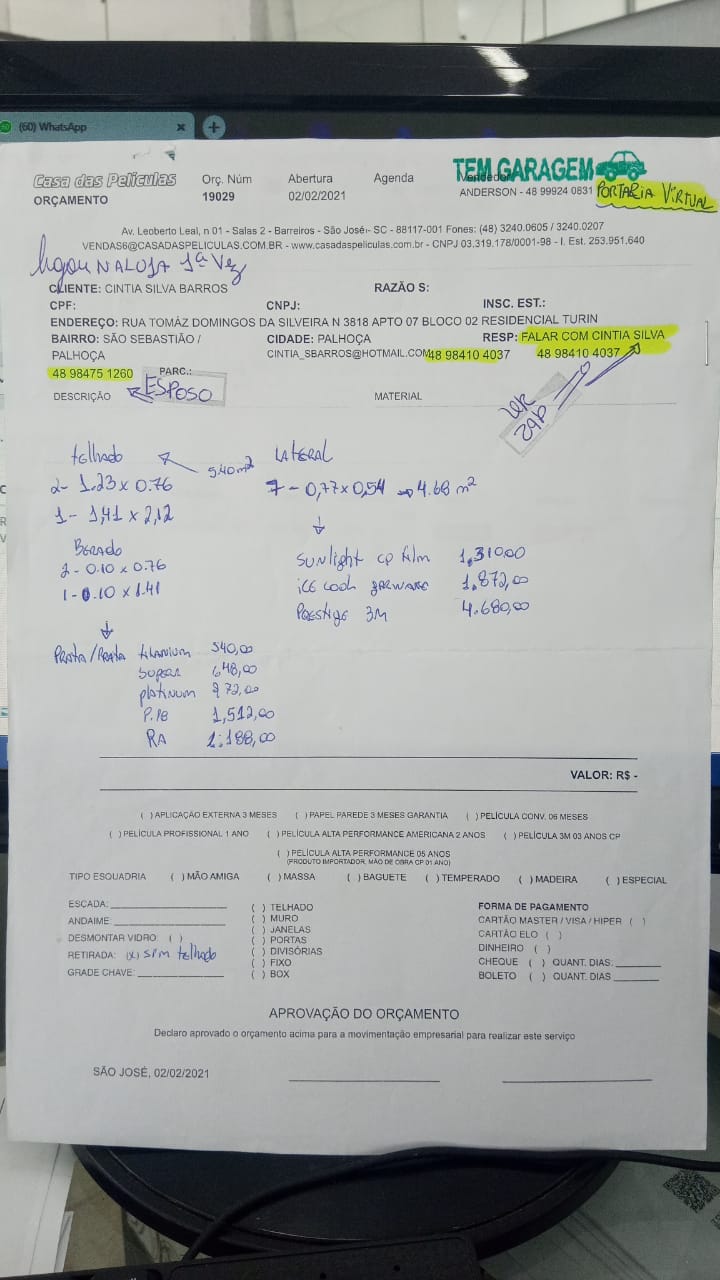 (60) WhatsApp
Casa das Películas
ORÇAMENTO
Orç. Núm
19029
Abertura
02/02/2021
Agenda
TEM GARAGEM
Vendedor
ANDERSON - 48 99924 0831
PORTARIA VIRTUAL
Av. Leoberto Leal, n 01 - Salas 2 - Barreiros - São José - SC - 88117-001 Fones: (48) 3240.0605 / 3240.0207
VENDAS6@CASADASPELICULAS.COM.BR - www.casadaspeliculas.com.br - CNPJ 03.319.178/0001-98 - I. Est. 253.951.640
ligou NA LOJA 1ª Vez
CLIENTE: CINTIA SILVA BARROS
RAZÃO S:
CPF:
CNPJ:
INSC. EST.:
ENDEREÇO: RUA TOMÁZ DOMINGOS DA SILVEIRA N 3818 APTO 07 BLOCO 02 RESIDENCIAL TURIN
BAIRRO: SÃO SEBASTIÃO /
PALHOÇA
CIDADE: PALHOÇA
RESP: FALAR COM CINTIA SILVA
CINTIA_SBARROS@HOTMAIL.COM 48 98410 4037
48 98410 4037
48 98475 1260
PARC.:
ESPOSO
DESCRIÇÃO
MATERIAL
telhado
5.40 m²
2- 1.23 x 0.76
1 - 1,41 x 2,12
LATERAL
7 - 0,77 x 0,54 → 4.68 m²
2 - 0.10 x 0.76
1 - 0.10 x 1.41
SUNlight CP film 1,310,00
ice cool garware 1.872,00
Prestige 3M 4.680,00
Prata/Prata titanium 540,00
super 648,00
platinum 972,00
P.PB 1,512,00
RA 1.188,00
VALOR: R$ -
( ) APLICAÇÃO EXTERNA 3 MESES ( ) PAPEL PAREDE 3 MESES GARANTIA ( ) PELÍCULA CONV. 06 MESES
( ) PELÍCULA PROFISSIONAL 1 ANO ( ) PELÍCULA ALTA PERFORMANCE AMERICANA 2 ANOS ( ) PELÍCULA 3M 03 ANOS CP
( ) PELÍCULA ALTA PERFORMANCE 05 ANOS
(PRODUTO IMPORTADOR, MÃO DE OBRA CP 01 ANO)
TIPO ESQUADRIA ( ) MÃO AMIGA ( ) MASSA ( ) BAGUETE ( ) TEMPERADO ( ) MADEIRA ( ) ESPECIAL
ESCADA:
ANDAIME:
DESMONTAR VIDRO: ( )
RETIRADA: (x) sim telhado
GRADE CHAVE:
( ) TELHADO
( ) MURO
( ) JANELAS
( ) PORTAS
( ) DIVISÓRIAS
( ) FIXO
( ) BOX
FORMA DE PAGAMENTO
CARTÃO MASTER / VISA / HIPER ( )
CARTÃO ELO ( )
DINHEIRO ( )
CHEQUE ( ) QUANT. DIAS:
BOLETO ( ) QUANT. DIAS
APROVAÇÃO DO ORÇAMENTO
Declaro aprovado o orçamento acima para a movimentação empresarial para realizar este serviço
SÃO JOSÉ, 02/02/2021